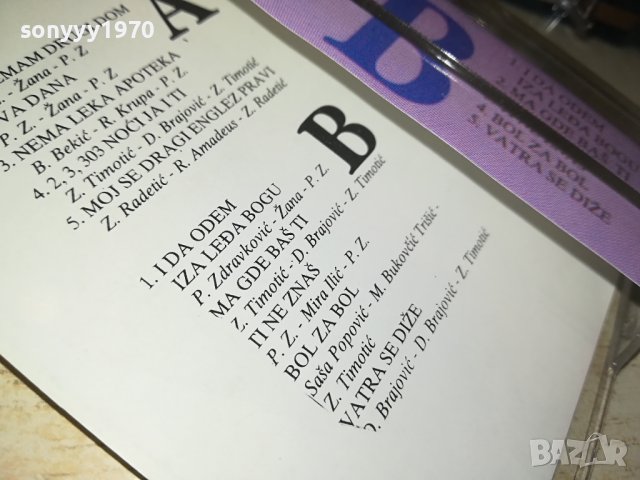 sonyyy1970
A
EMAM DRUGI DOM
Z. - Žana - P. Z
VA DANA
P. Z. - Žana - P. Z
3. NEMA LEKA APOTEKA
B. Bekić - R. Krupa - P. Z.
4. 2, 3, 303 NOĆI JA I TI
Z. Timotić - D. Brajović - Z. Timotić
5. MOJ SE DRAGI ENGLEZ PRAVI
Z. Radetić - R. Amadeus - Z. Radetić
B
1. I DA ODEM
IZA LEĐA BOGU
P. Zdravković - Žana - P. Z
MA GDE BAŠ TI
Z. Timotić - D. Brajović - Z. Timotić
TI NE ZNAŠ
P. Z. - Mira Ilić - P. Z.
BOL ZA BOL
Saša Popović - M. Bukovčić Trišić -
Z. Timotić
VATRA SE DIŽE
D. Brajović - D. Brajović - Z. Timotić
B
1. I DA ODEM
IZA LEĐA BOGU
2. MA GDE BAŠ TI
4. BOL ZA BOL
5. VATRA SE DIŽE
BAZAR